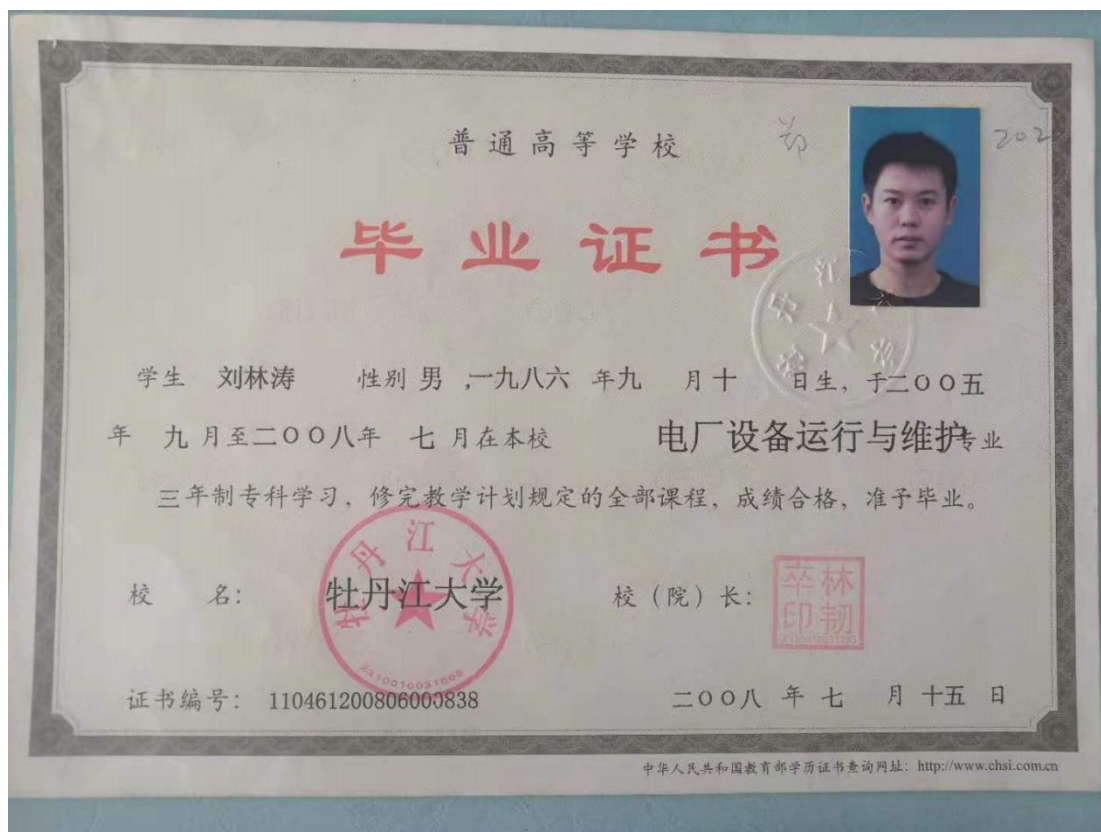 普通高等学校
郑
202
毕业证书
学生 刘林涛 性别 男 ,一九八六 年九 月十 日生，于二〇〇五
年 九 月至二〇〇八年 七 月在本校 电厂设备运行与维护专业
三年制专科学习，修完教学计划规定的全部课程，成绩合格，准予毕业。
牡丹江大学
校 名： 牡丹江大学 校（院）长：
林韧卒印
证书编号： 110461200806000838 二〇〇八 年 七 月 十五 日
中华人民共和国教育部学历证书查询网址：http://www.chsi.com.cn